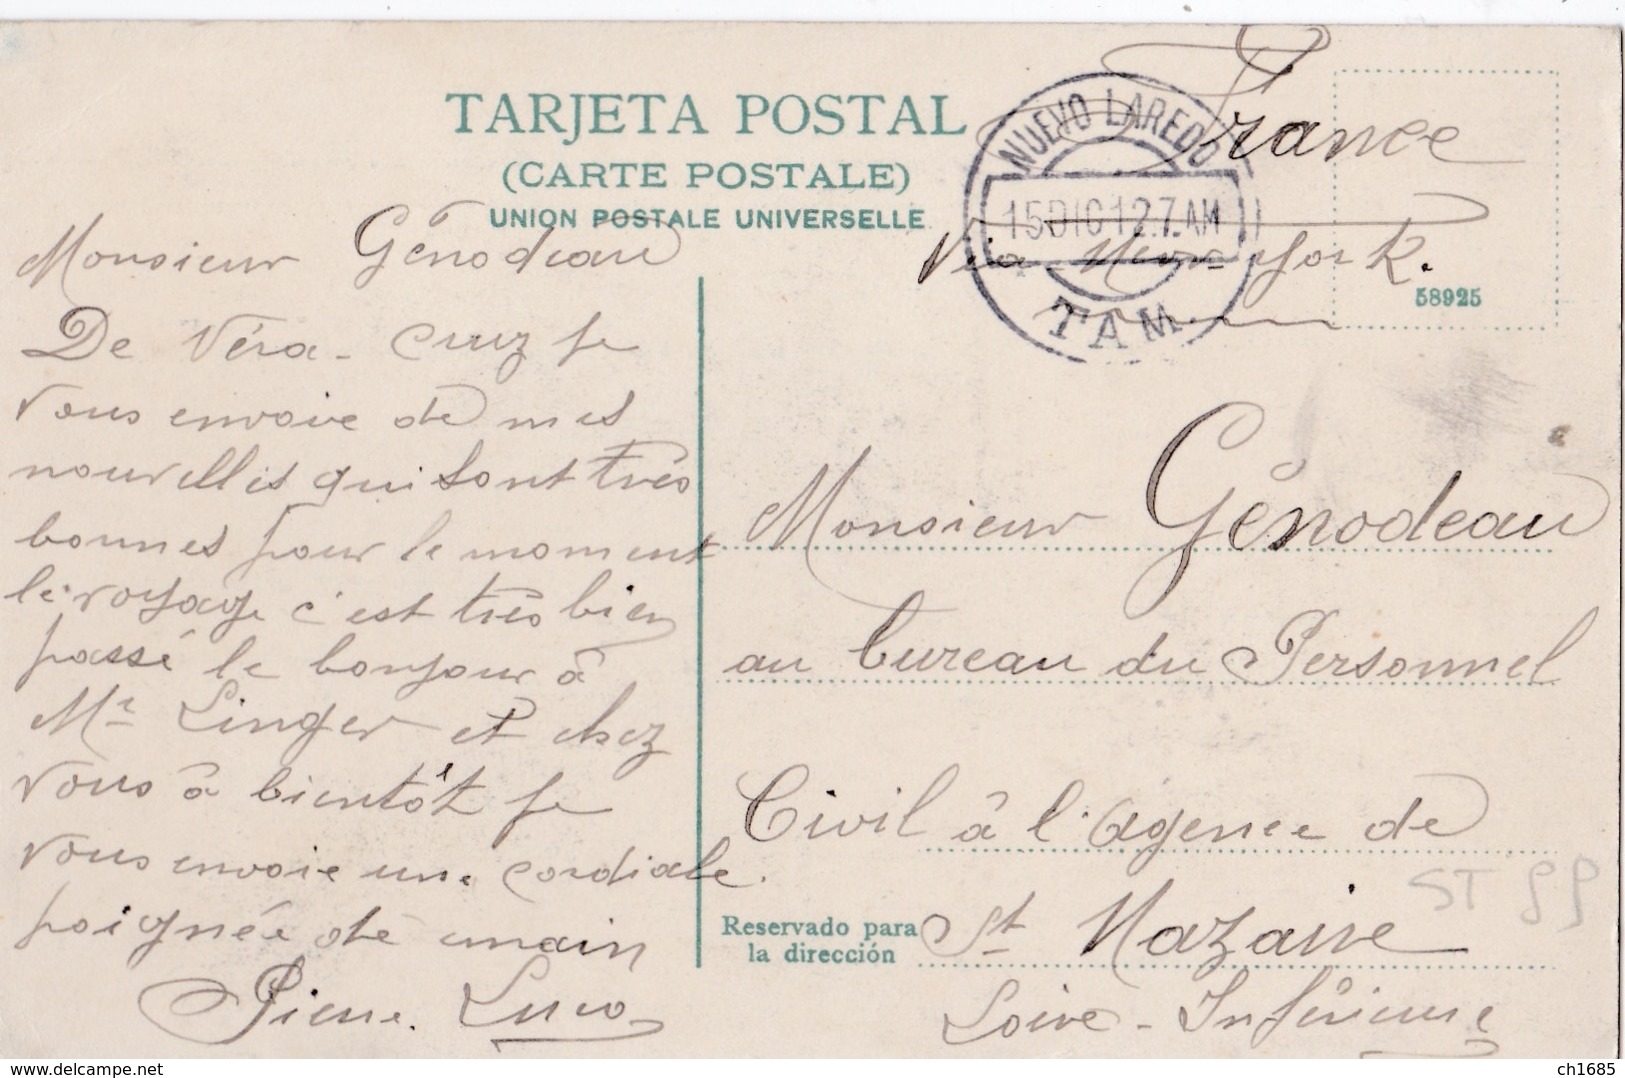 TARJETA POSTAL
(CARTE POSTALE)
UNION POSTALE UNIVERSELLE
NUEVO LAREDO
15 DIC 12 7. AM
TAM.
France
Via New York.
58925
Monsieur Génodeau
De Véra-Cruz je
vous envoie de mes
nouvelles qui sont très
bonnes pour le moment
le voyage c'est très bien
passé le bonjour à
Mr Linger et chez
vous à bientôt je
vous envoie une cordiale.
poignée de main
Pierre
Monsieur Génodeau
au bureau du Personnel
Civil à l'agence de
St Nazaire
Loire-Inférieure
Reservado para
la dirección
ST
delcampe.net
ch1685